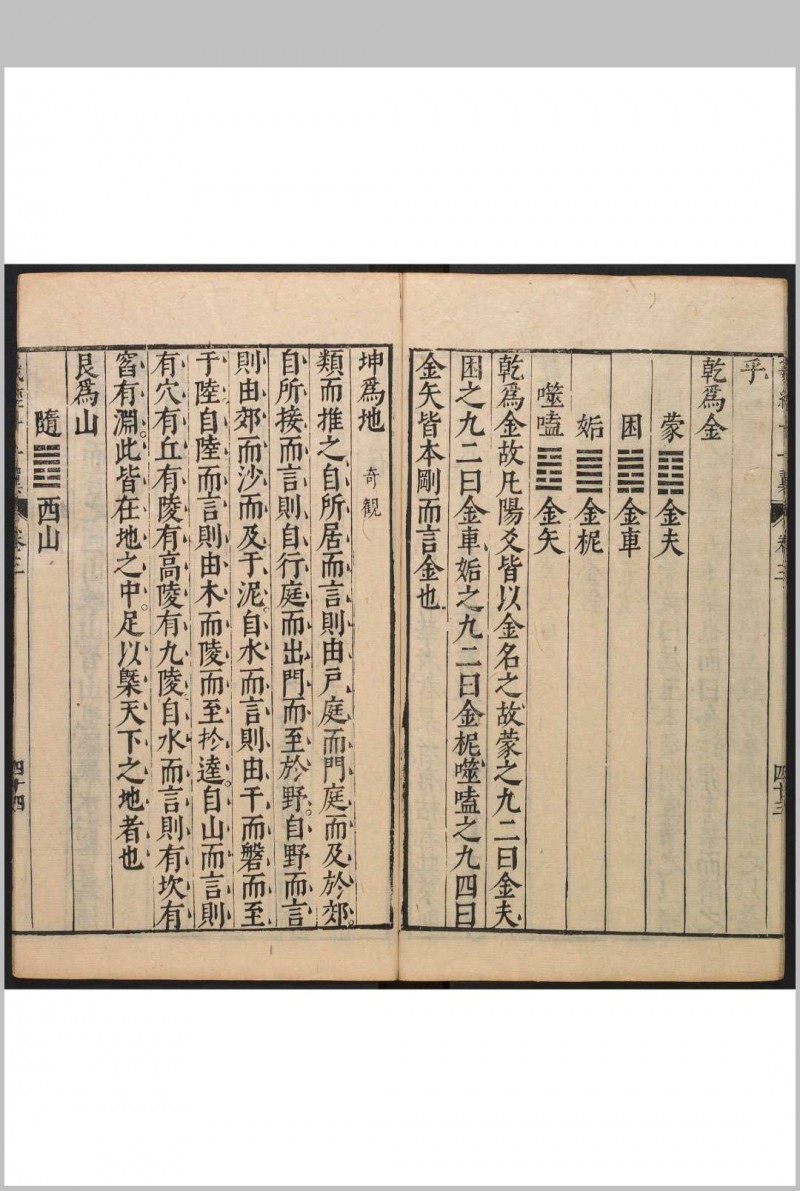 乎
乾爲金
蒙䷃金夫
困䷮金車
姤䷫金柅
噬嗑䷔金矢
乾爲金故凡陽爻皆以金名之故蒙之九二曰金夫
困之九二曰金車姤之九二曰金柅噬嗑之九四曰
金矢皆本剛而言金也
坤爲地 奇觀
類而推之自所居而言則由戸庭而門庭而及於郊。
自所接而言則自行庭而出門而至於野。自野而言
則由郊而沙而及于泥。自水而言則由干而磐而至
于陸自陸而言則由木而陵而至於逵。自山而言則
有穴有丘有陵有高陵有九陵自水而言則有坎有
窞有淵。此皆在地之中。足以槩天下之地者也
艮爲山
隨䷐西山
卷三
四十三
卷三
四十四